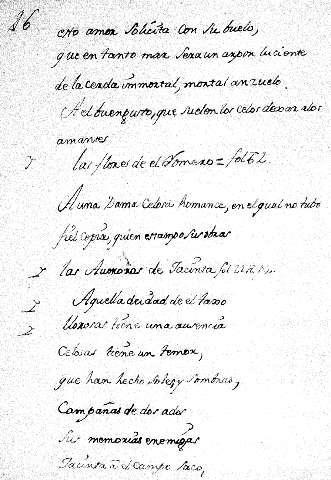 16
otto amor solicita con su buelo,
que en tanto mar sera un arpon luciente
de la cerda immortal, mortal anzuelo.
A el buen gusto, que suelen los celos dexar a los
amantes
las flores de el Romero = fol 62.
A una Dama Celosa Romance, en el qual no tubo
fiel copia, quien estampo sus obras
las Auroras de Jacinta fol
Aquella deidad de el taxo
llorosas tiene una ausencia
Celosas tiene un temor,
que han hecho soles, y sombras,
Campañas de dos
sus memorias enemigas
Jacinta a el campo saco,